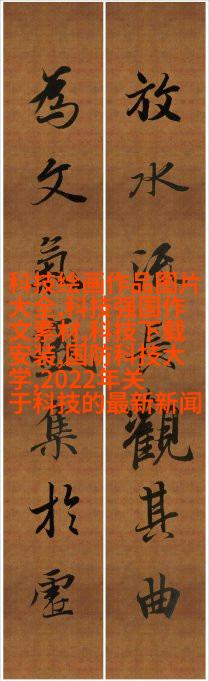 放水流長觀其曲
為文氣集於虛
科技绘画作品图片
大全,科技强国作
文素材,科技下载
安装,国防科技大
学,2022年关
于科技的最新新闻